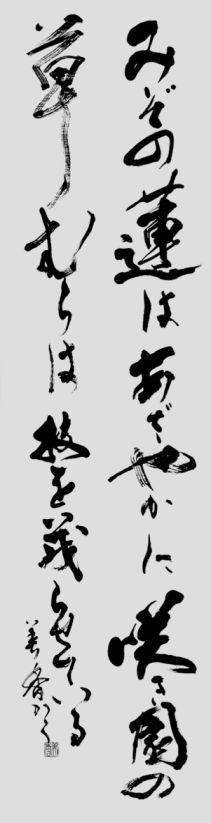 みぞの蓮はあざやかに咲き園の
草むらは枝を茂らせている
かく